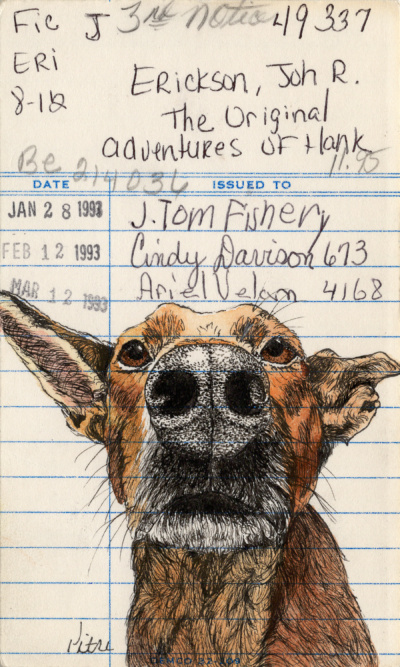 Fic J 3rd notice 49 337
ERi
8-12
Erickson, Joh R.
The Original
adventures of Hank
11.95
Be 214036
DATE ISSUED TO
JAN 28 1993 J. Tom Fishery
FEB 12 1993 Cindy Davison 673
MAR 12 1993 Ariel Velson 4168
Pitre
DEMCO 32-209